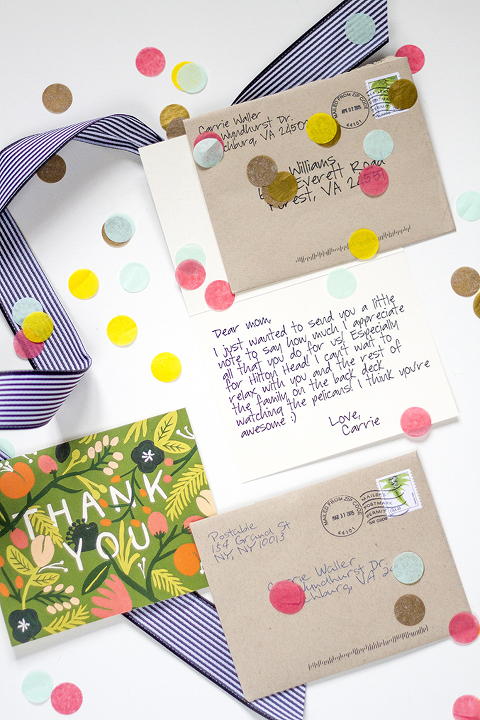 Carrie Waller
Wyndhurst Dr.
chburg, VA 2450
MAILED FROM ZIP CODE
44101
Williams
Everett Road
Forest, VA
Dear mom,
I just wanted to send you a little
note to say how much I appreciate
all that you do for us! Especially
for Hilton Head! I can't wait to
relax with you and the rest of
the family on the back deck
watching the pelicans! I think you're
awesome :)
Love,
Carrie
THANK
YOU
Postable
154 Grand St
NY, NY 10013
MAILED FROM ZIP CODE
MAR 31 2015
Carrie Waller
Wyndhurst Dr.
chburg, VA 2